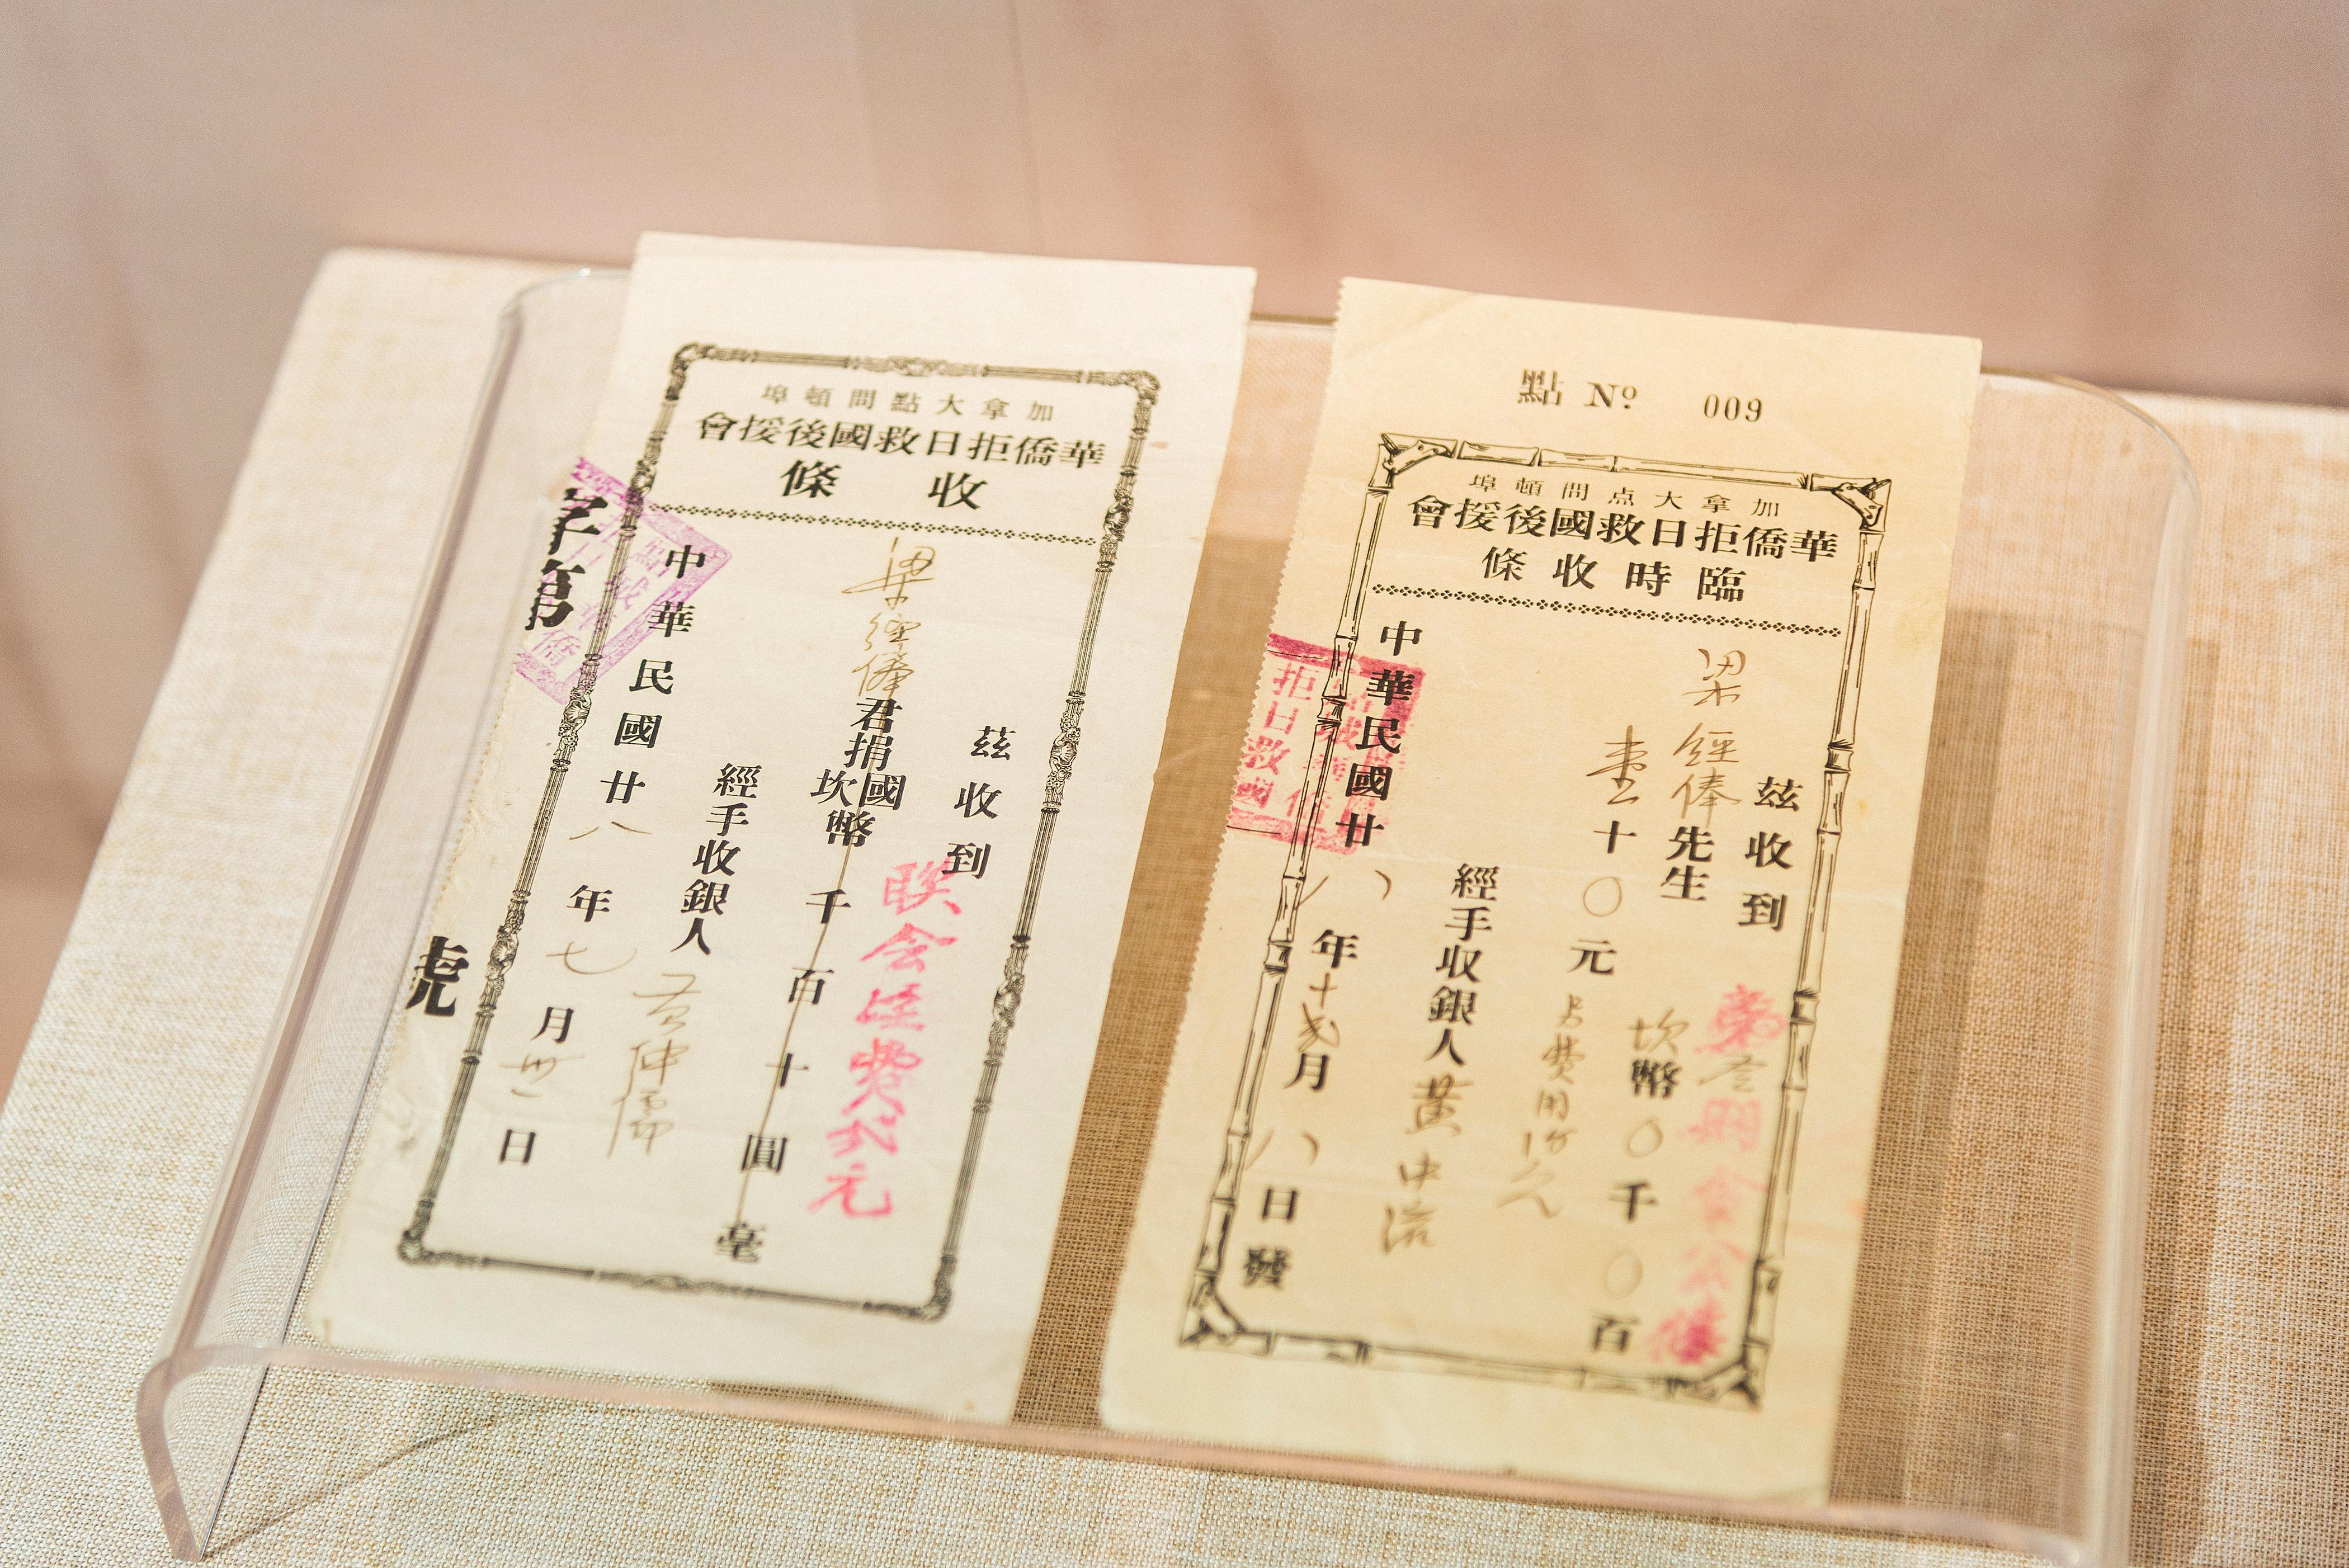 加拿大點問頓埠
華僑拒日救國後援會
收條
茲收到
梁經俸君捐國
坎幣 千 百 十 圓 毫
联会 費 元
經手收銀人 黃仲儒
中華民國廿八年七月卅一日
字第
號
點 No 009
加拿大点問頓埠
華僑拒日救國後援會
臨時收條
茲收到
梁經俸先生
坎幣〇千〇百
壹十〇元
經手收銀人 黃中流
中華民國廿八年十弍月八日發
拒日救國